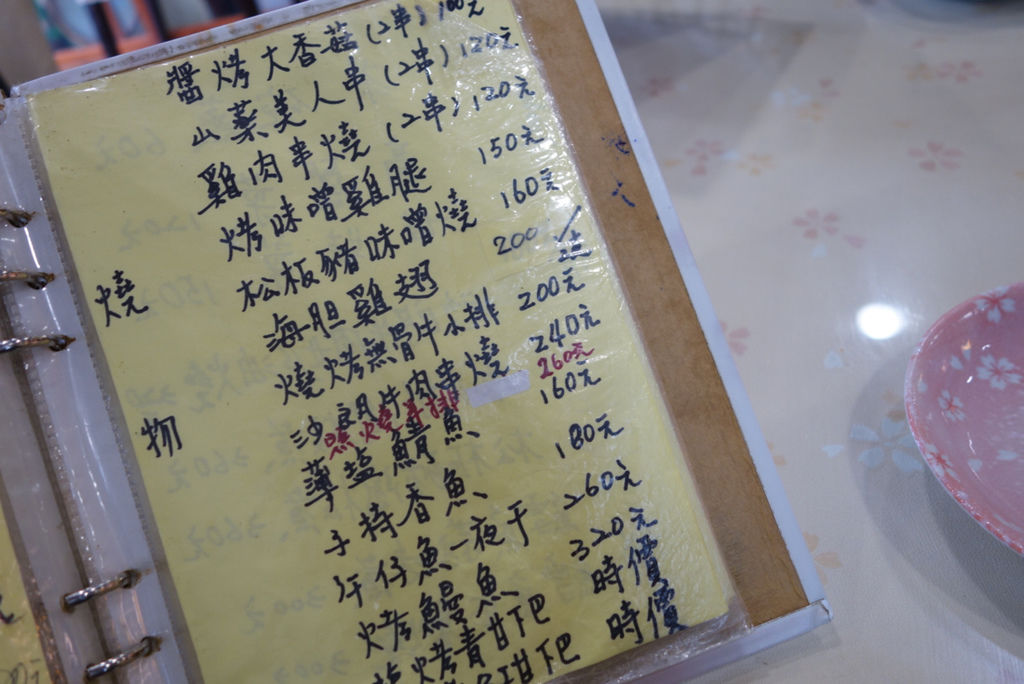 燒物
醬烤大香菇(2串) 100元
山藥美人串(2串) 120元
雞肉串燒(2串) 120元
烤味噌雞腿 150元
松板豬味噌燒 160元
海胆雞翅 200/
燒烤無骨牛小排 200元
沙朗牛肉串燒 240元
照燒牛排 260元
薄塩鯖魚 160元
手持香魚 180元
午仔魚一夜干 260元
烤鰻魚 320元
塩烤青甘下巴 時價
甘下巴 時價